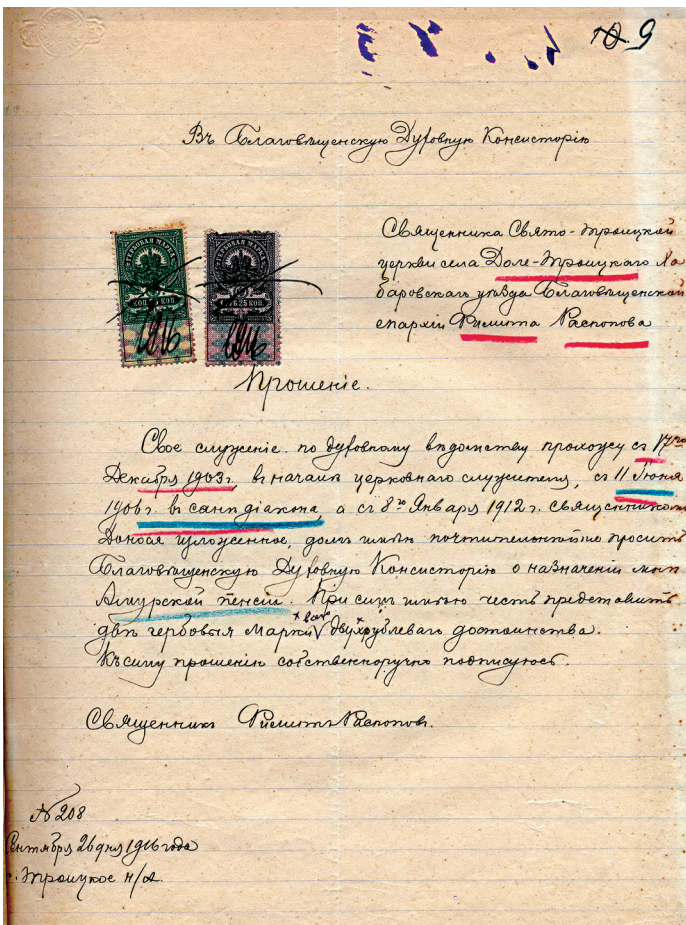 10 9
Въ Благовѣщенскую Духовную Консисторію
Священника Свято-Троицкой
церкви села Доле-Троицкаго Ха
баровскаго уѣзда Благовѣщенской
епархіи Филита Распопова
ГЕРБОВАЯ МАРКА
КОП КОП.
1916
ГЕРБОВАЯ МАРКА
25 КОП.
1916
Прошеніе.
Свое служеніе по духовному вѣдомству прохожу съ 17го
Декабря 1903 г. въ началѣ церковнаго служителя, съ 11 Іюня
1906 г. въ санѣ діакона, а съ 8го Января 1912 г. священникомъ
Донося изложенное, долгъ имѣю почтительнѣйше просить
Благовѣщенскую Духовную Консисторію о назначеніи мнѣ
Амурской пенсіи. При семъ имѣю честь представить
двѣ гербовыя марки двухрублеваго достоинства.
Къ сему прошенію собственноручно подписуюсь.
Священникъ Филитъ Распоповъ.
№ 208
Сентября 26 дня 1916 года
с. Троицкое н/А.